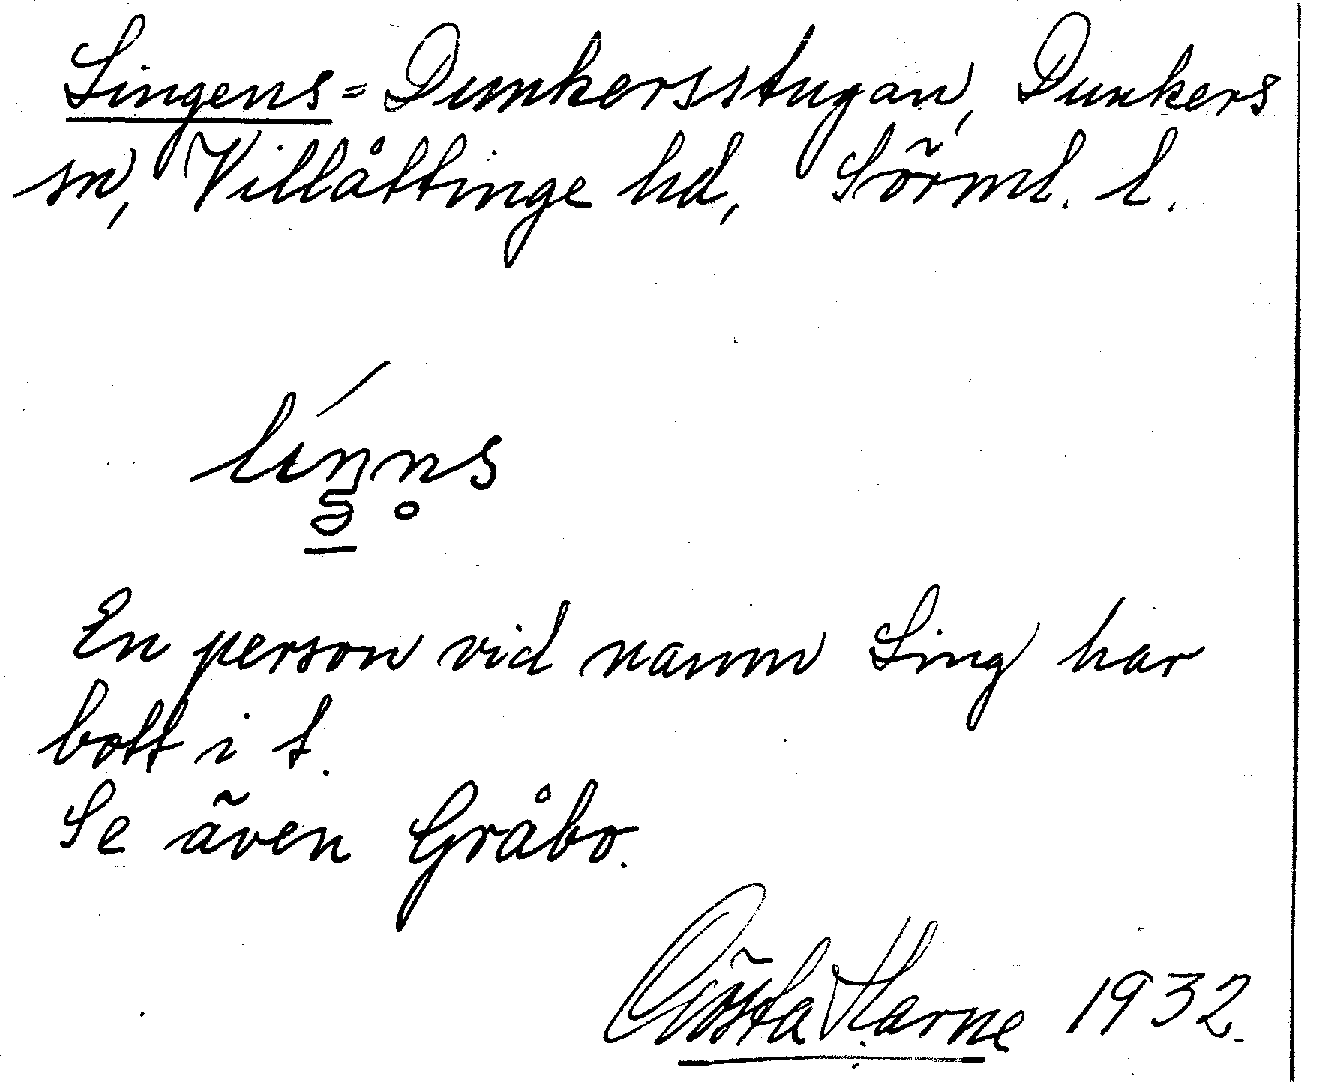 Lingens = Dunkersstugan, Dunkers
sn, Villåttinge hd, Sörml. l.
En person vid namn Ling har
bott i t.
Se även Gråbo.
Gösta Harne 1932.